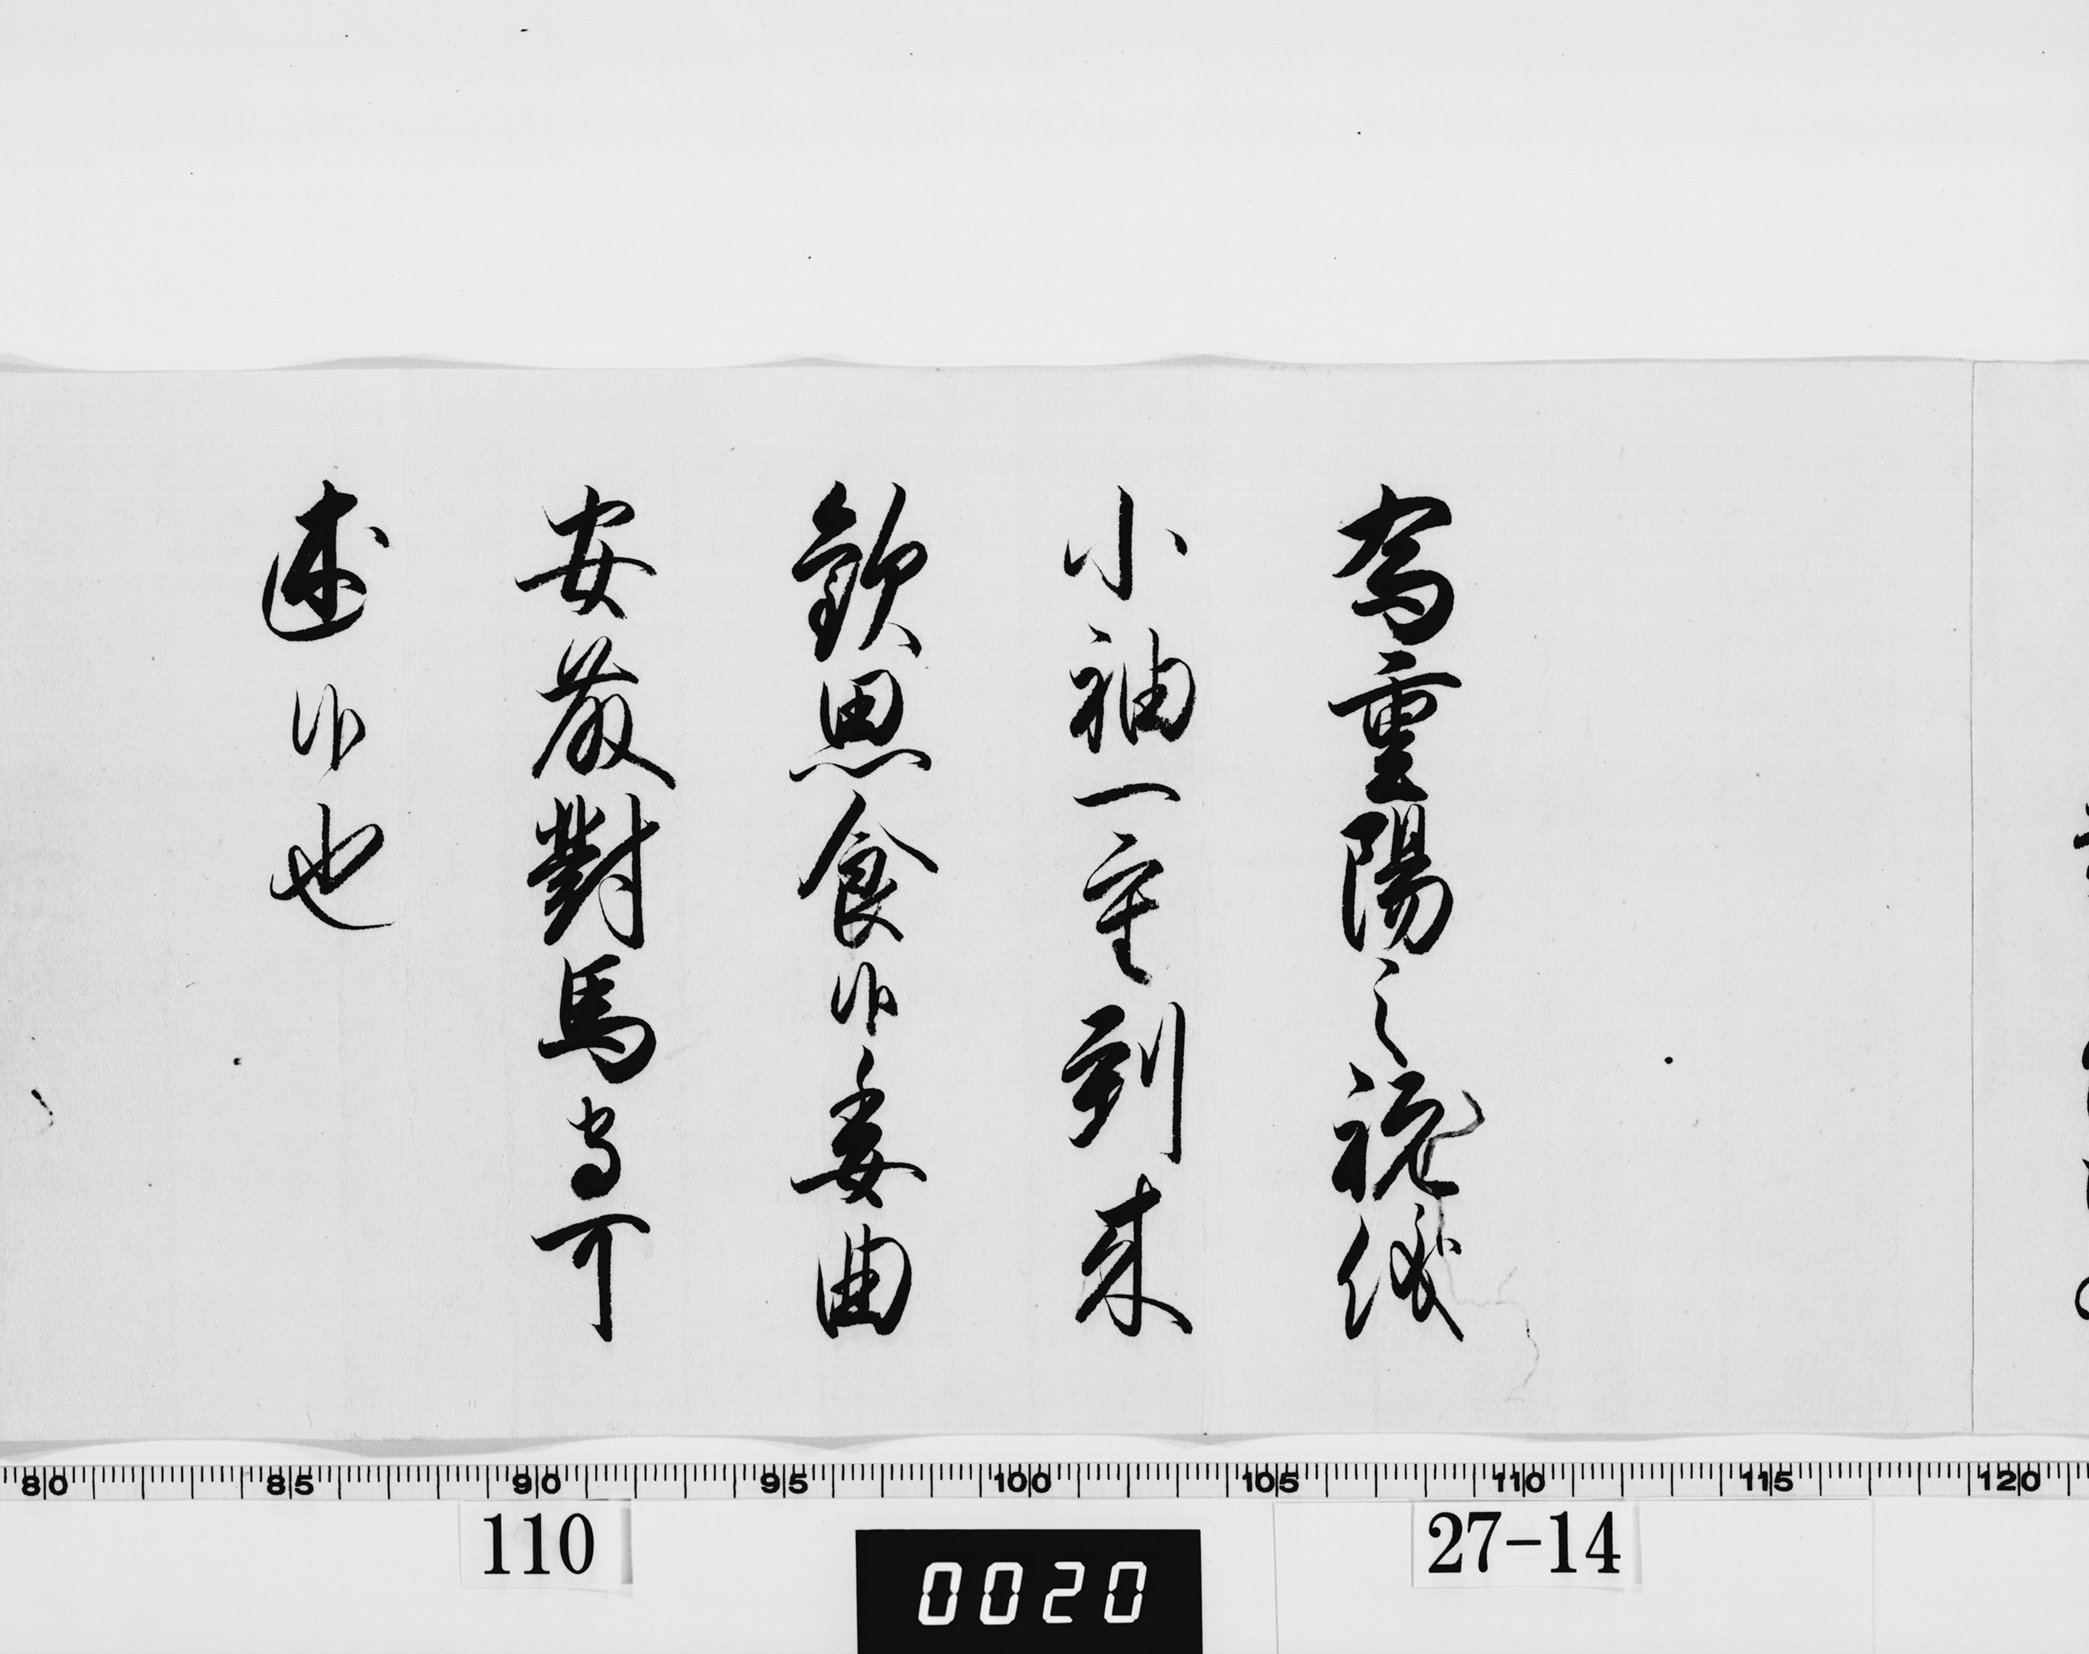 為重陽之祝儀
小袖一重到来
歓思食候委曲
安藤對馬守可
述候也
80 85 90 95 100 105 110 115 120
110
0020
27-14